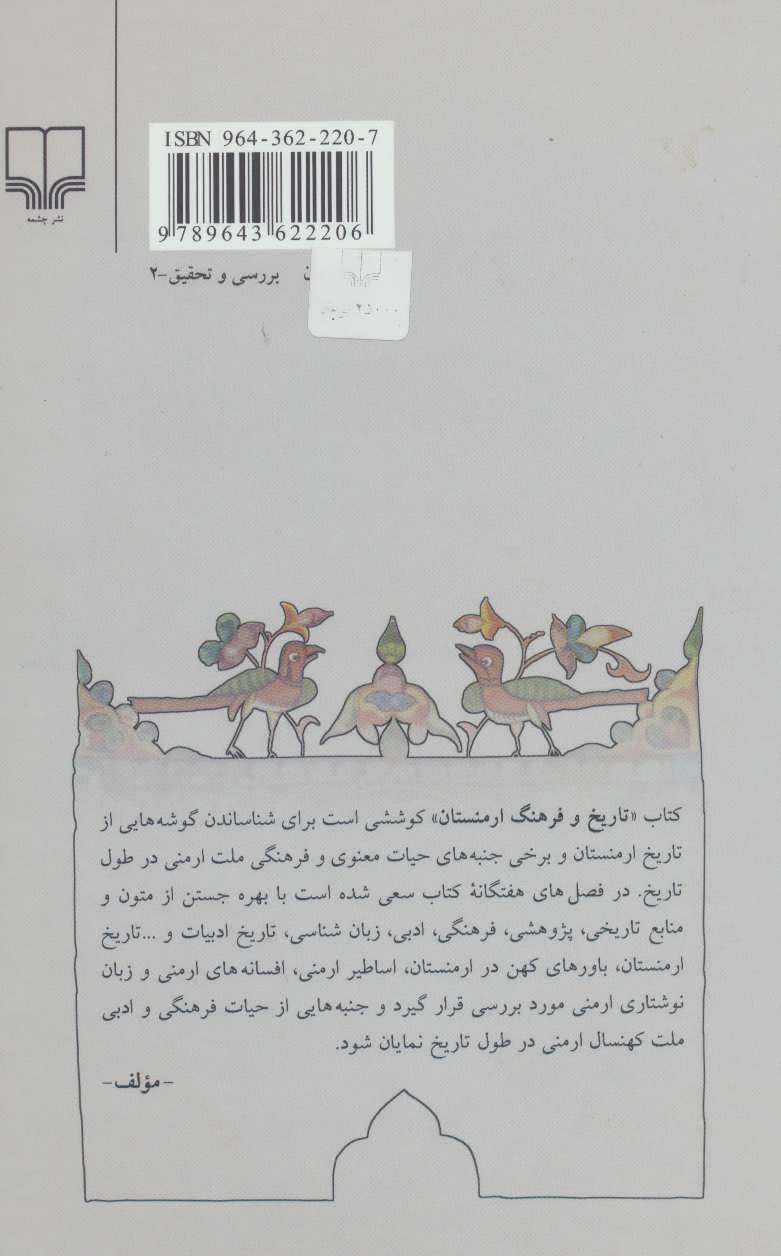 ISBN 964-362-220-7
9 789643 622206
نشر چشمه
بررسی و تحقیق -۲
۲۵۰۰۰
کتاب «تاریخ و فرهنگ ارمنستان» کوششی است برای شناساندن گوشه‌هایی از
تاریخ ارمنستان و برخی جنبه‌های حیات معنوی و فرهنگی ملت ارمنی در طول
تاریخ. در فصل‌های هفتگانهٔ کتاب سعی شده است با بهره جستن از متون و
منابع تاریخی، پژوهشی، فرهنگی، ادبی، زبان شناسی، تاریخ ادبیات و ...تاریخ
ارمنستان، باورهای کهن در ارمنستان، اساطیر ارمنی، افسانه‌های ارمنی و زبان
نوشتاری ارمنی مورد بررسی قرار گیرد و جنبه‌هایی از حیات فرهنگی و ادبی
ملت کهنسال ارمنی در طول تاریخ نمایان شود.
-مؤلف-